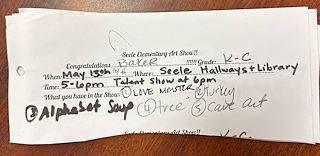 Seele Elementary Art Show!!
Congratulations Baker !!!!!! Grade: K-C
When: May 13th Where: Seele Hallways + Library
Time: 5-6pm Talent Show at 6pm
What you have in the Show: ① LOVE MONSTER ② Turkey
③ Alphabet Soup ④ tree ⑤ cave art